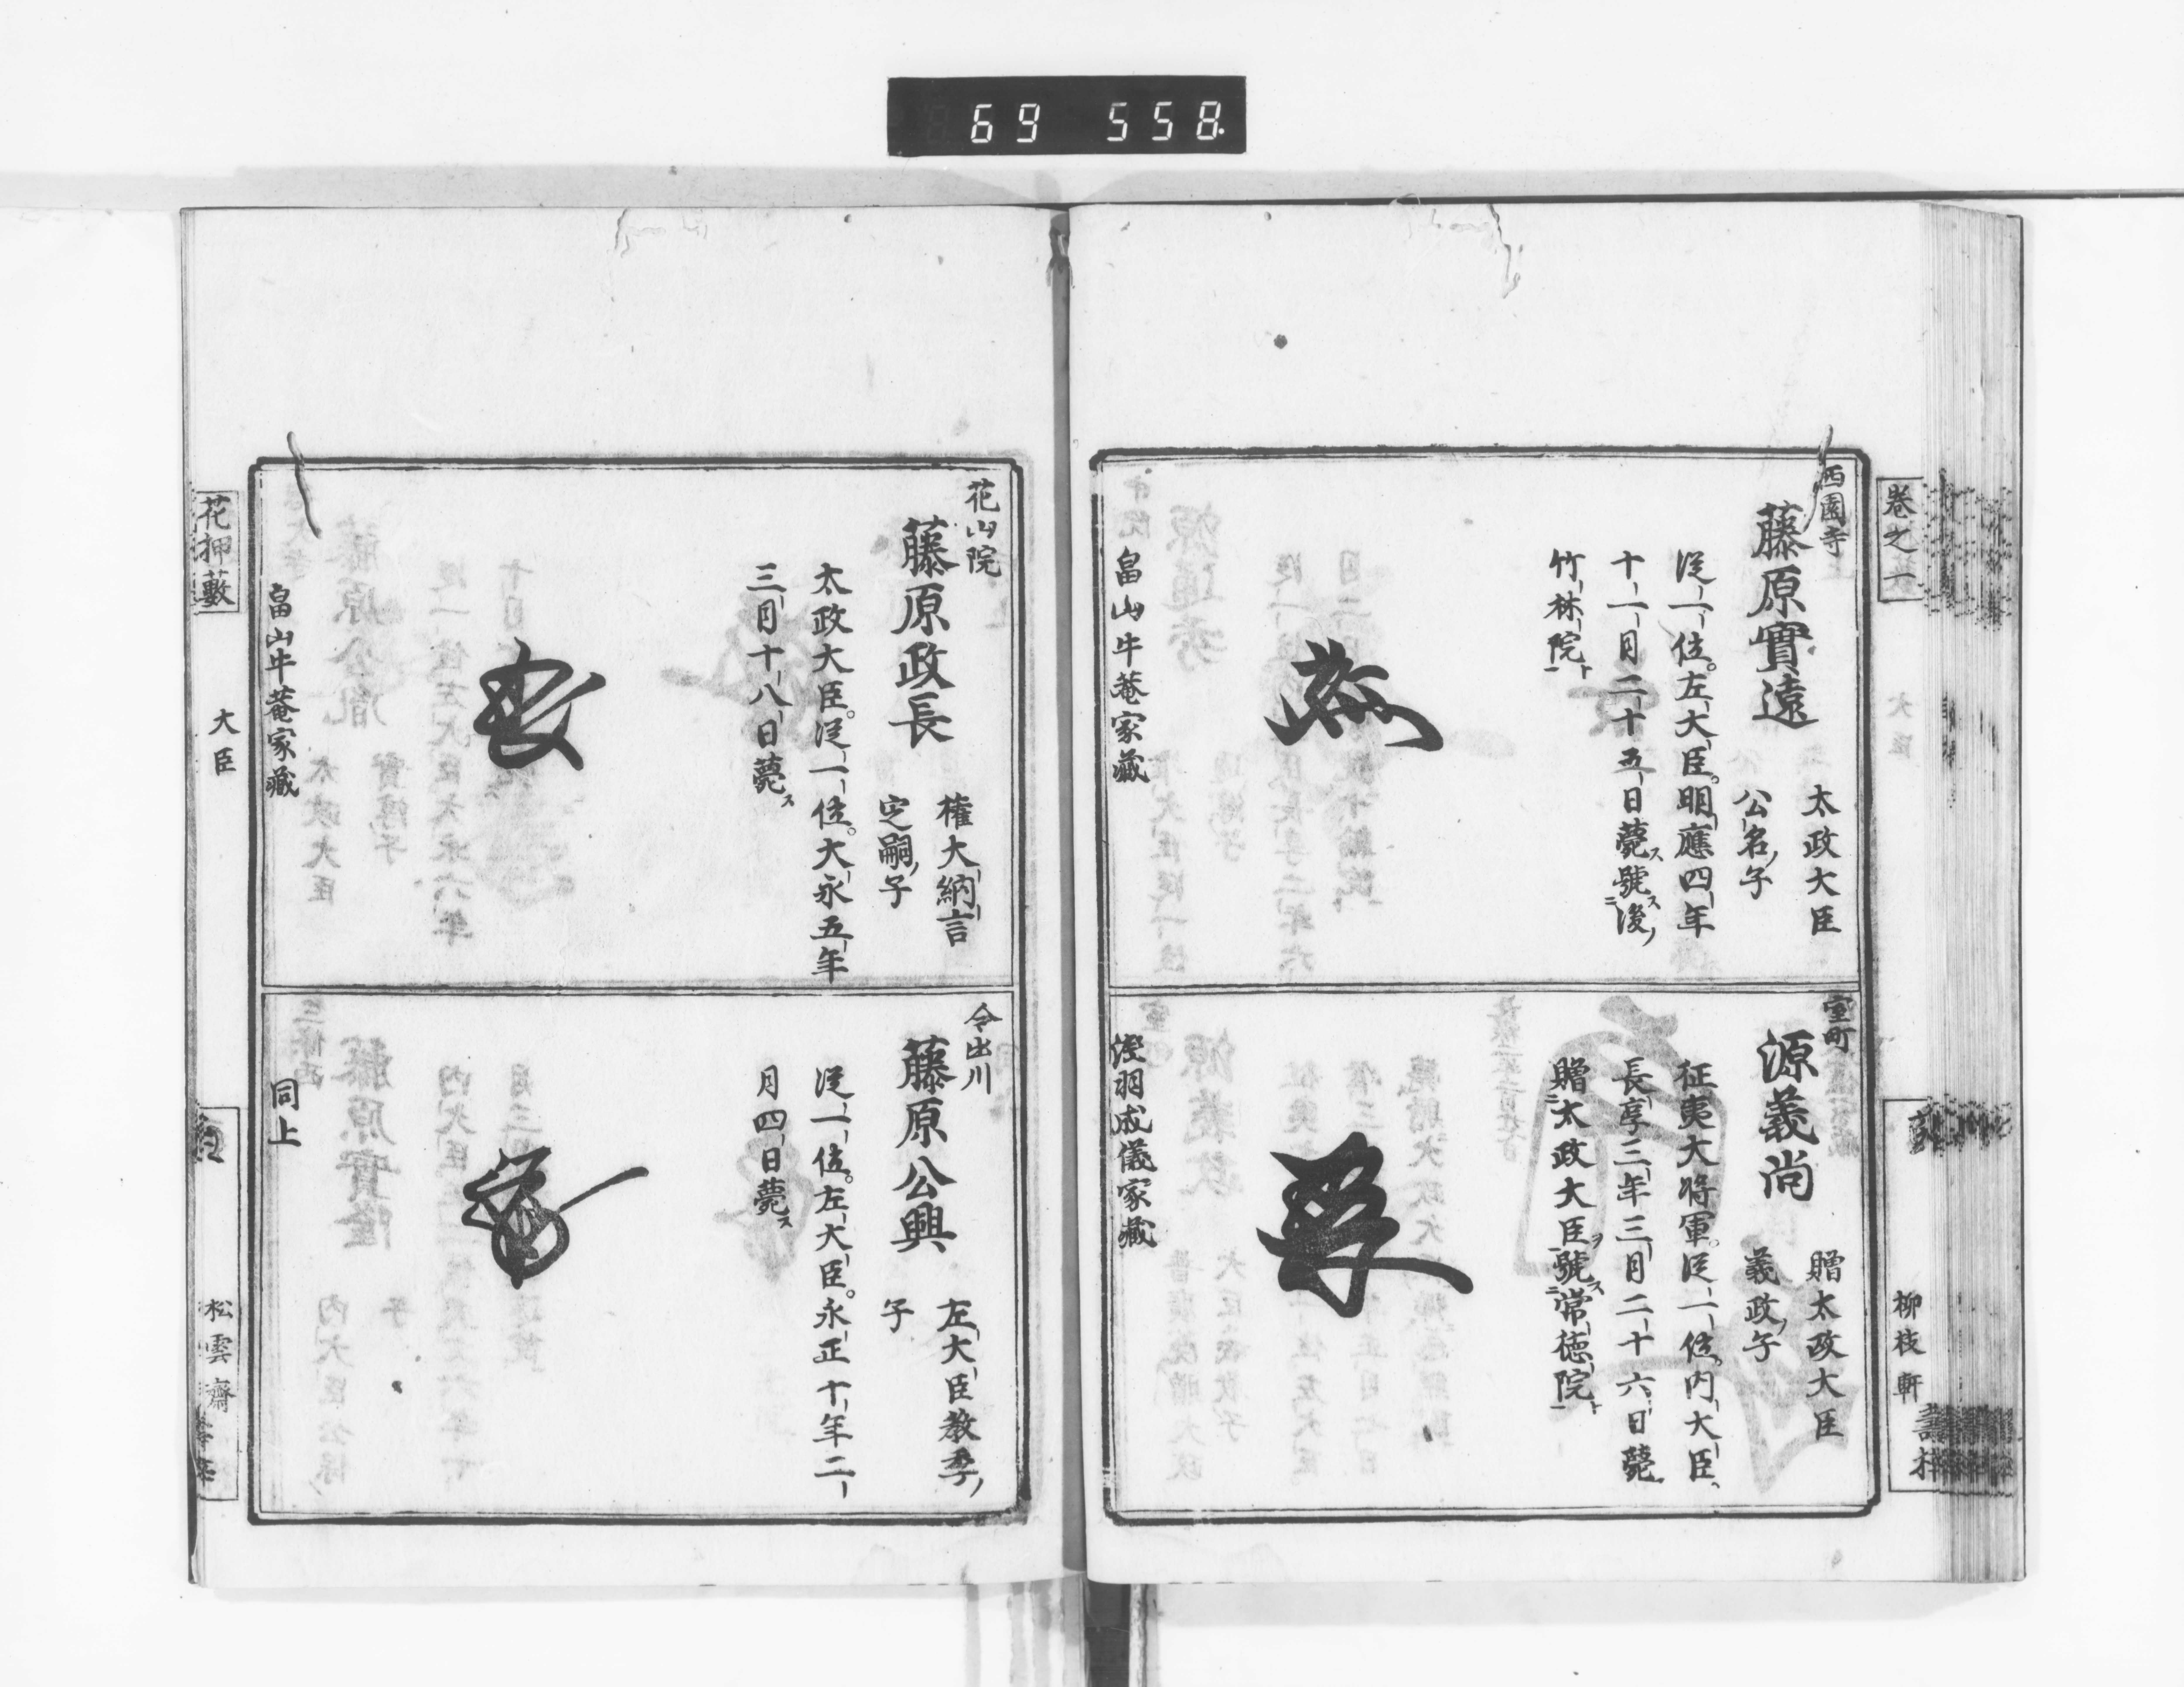 69 558.
卷之一
柳枝軒
西園寺
藤原實遠
太政大臣
公名ノ子
從一位。左大臣。明應四年
十一月二十五日薨ス號ス後ノ
竹林院ト
畠山牛菴家藏
室町
源義尚
贈太政大臣
義政ノ子
征夷大将軍。從一位。内大臣、
長享三年三月二十六日薨
贈太政大臣ヲ號ス常徳院ト
淫羽成儀家藏
花山院
藤原政長
權大納言
定嗣ノ子
太政大臣。從一位。大永五年
三月十八日薨ス
畠山牛菴家藏
今出川
藤原公興
左大臣教季ノ
子
從一位。左大臣。永正十年二
月四日薨ス
同上
花押藪
大臣
松雲齋